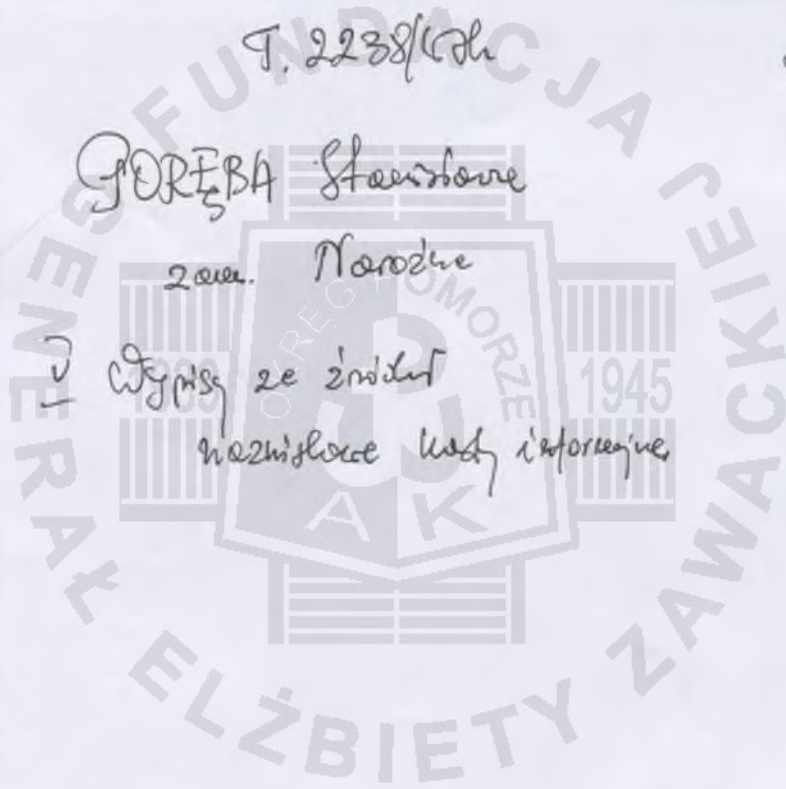 T. 2238/WSK
PORĘBA Stanisława
zam. Narożne
V Wypisy ze źródeł
nazwiskowe karty informacyjne
FUNDACJA GENERAŁ ELŻBIETY ZAWACKIEJ
OKRĘG POMORZE
1939 1945
AK